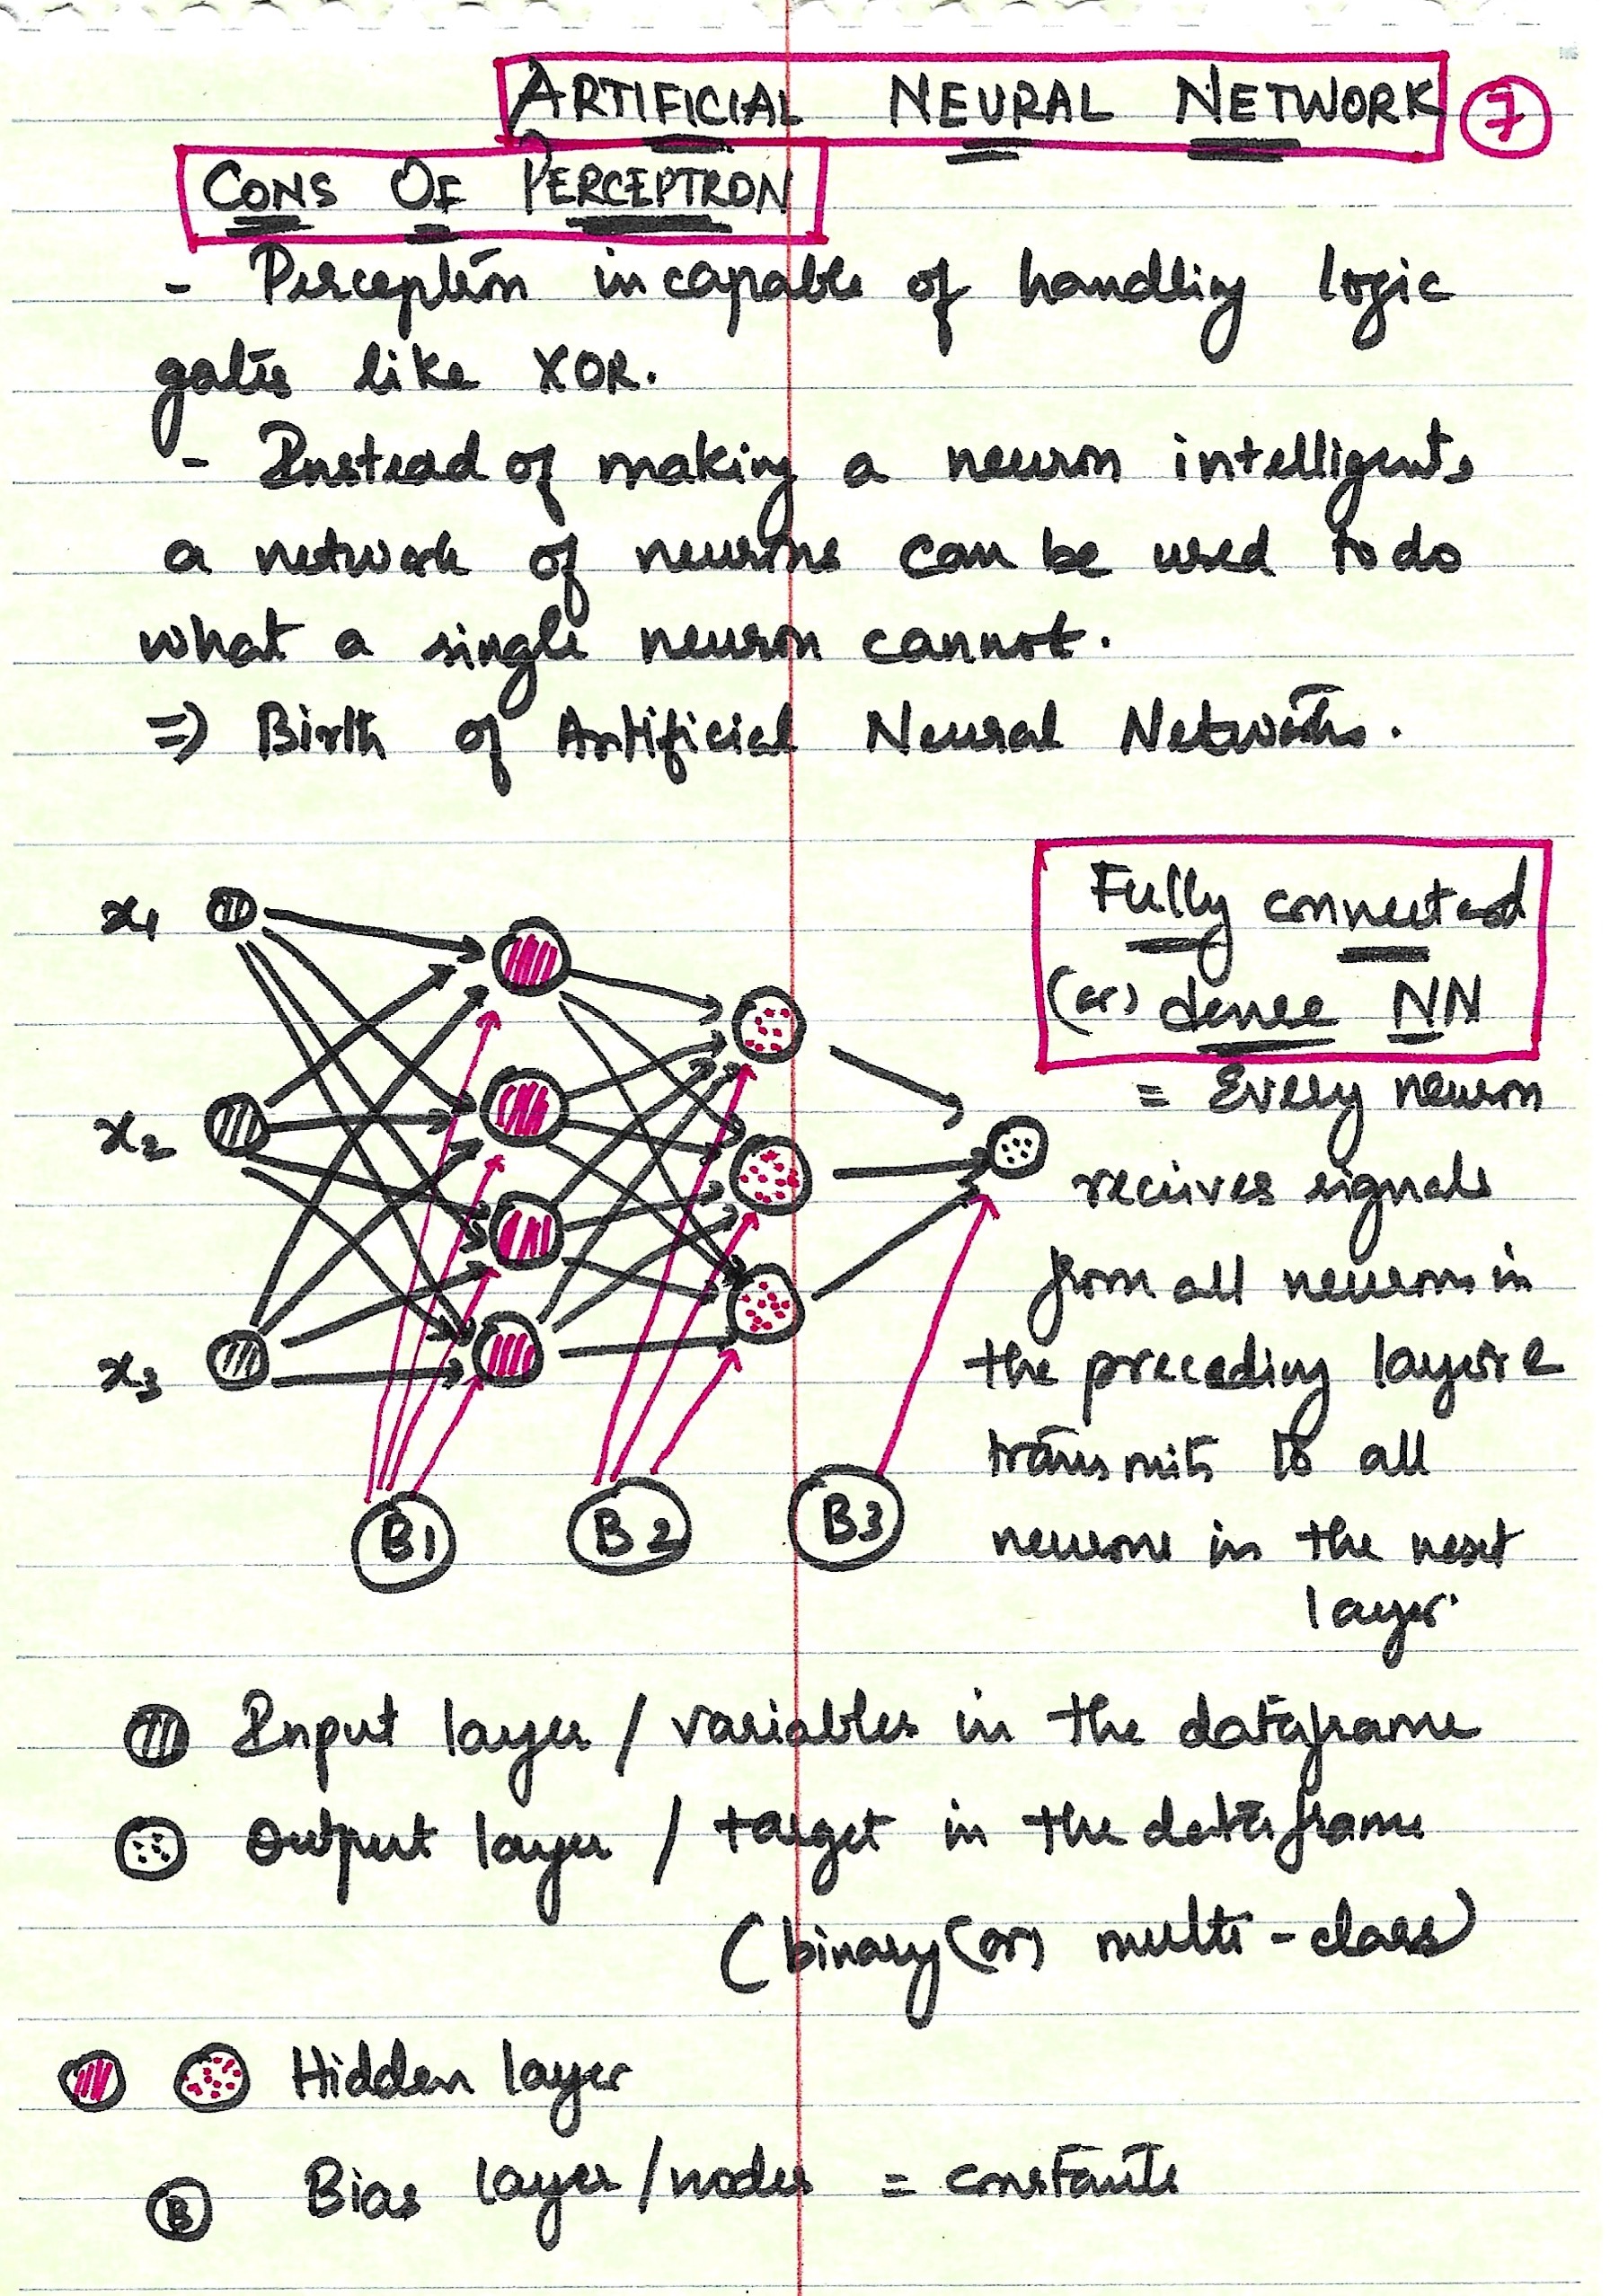 ARTIFICIAL NEURAL NETWORK 7
CONS OF PERCEPTRON
- Perceptron incapable of handling logic
gates like XOR.
- Instead of making a neuron intelligent,
a network of neurons can be used to do
what a single neuron cannot.
=> Birth of Artificial Neural Networks.
Fully connected
(or) dense NN
= Every neuron
receives signals
from all neurons in
the preceding layer &
transmits to all
neurons in the next
layer.
x1
x2
x3
B1 B2 B3
Input layer / variables in the dataframe
Output layer / target in the dataframe
(binary (or) multi-class)
Hidden layer
B Bias layer/nodes = constants